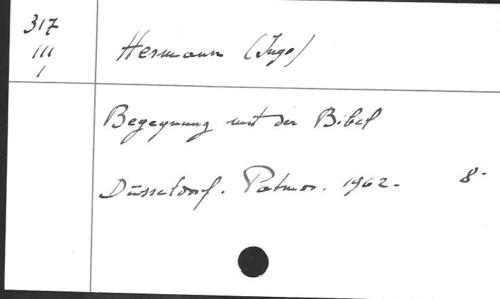 317
III
1
Hermann (Ingo)
Begegnung mit der Bibel
Düsseldorf. Patmos. 1962. 8°